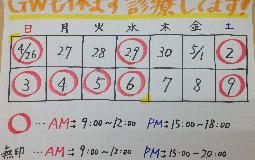 GWも休まず診療してます!
日 月 火 水 木 金 土
4/26 27 28 29 30 5/1 2
3 4 5 6 7 8 9
○ … AM: 9:00~12:00 PM: 15:00~18:00
無印 … AM: 9:00~12:00 PM: 15:00~20:00